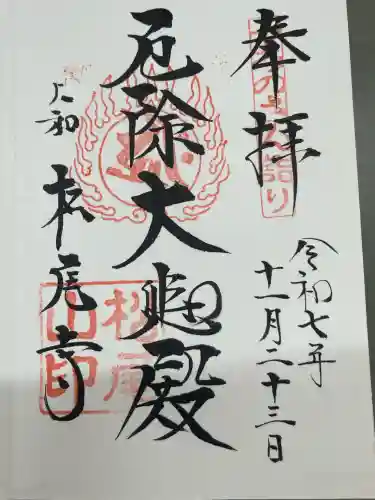 奉拝
令和七年
十一月二十三日
厄除大悲殿
大和 松尾寺
松尾山印